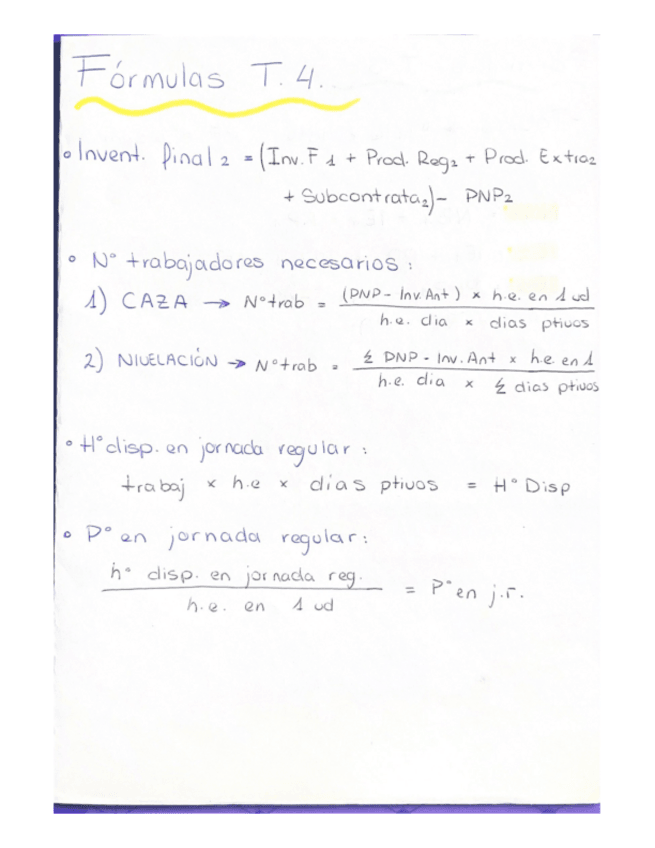 Fórmulas T. 4.
• Invent. final 2 = (Inv. F 1 + Prod. Reg2 + Prod. Extra2
+ Subcontrata2) - PNP2
• Nº trabajadores necesarios:
1) CAZA → Nº trab = (PNP - Inv. Ant) × h.e. en 1 ud
h.e. dia × dias ptivos
2) NIVELACIÓN → Nº trab = Σ PNP - Inv. Ant × h.e. en 1
h.e. dia × Σ dias ptivos
• Hº disp. en jornada regular:
trabaj × h.e × dias ptivos = Hº Disp
• Pº en jornada regular:
hº disp. en jornada reg. = Pº en j.r.
h.e. en 1 ud